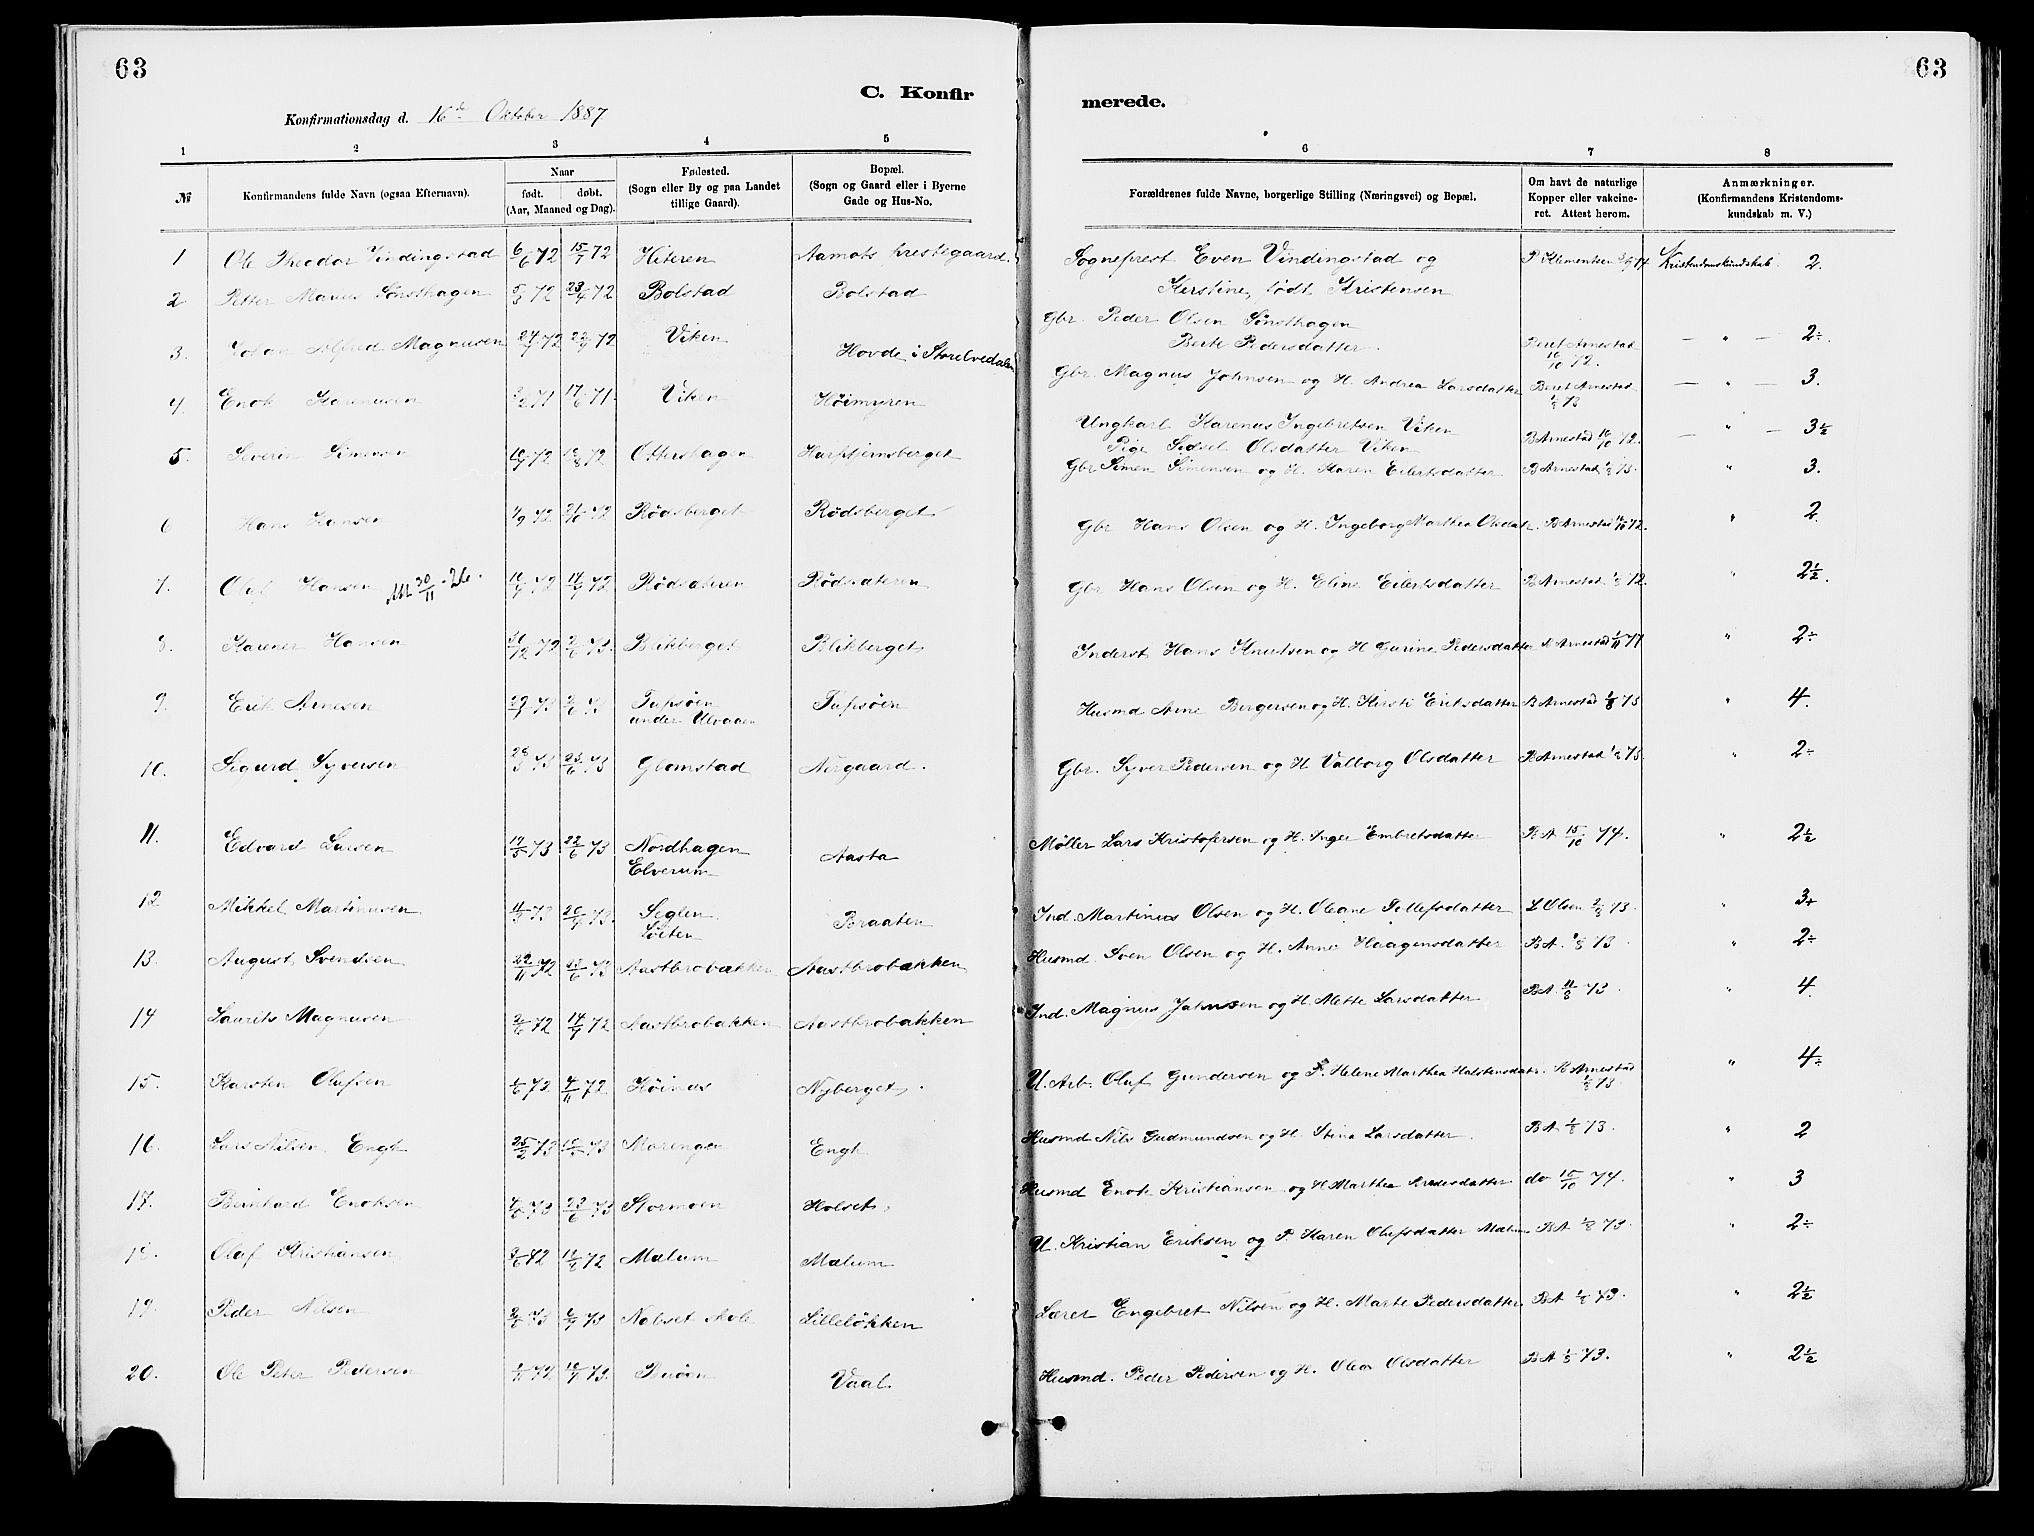 63
63
C. Konfir
merede.
Konfirmationsdag d. 16de Oktober 1887
1 2 3 4 5
6 7 8
№
Konfirmandens fulde Navn (ogsaa Efternavn).
Naar
født. døbt.
(Aar, Maaned og Dag).
Fødested.
(Sogn eller By og paa Landet
tillige Gaard).
Bopæl.
(Sogn og Gaard eller i Byerne
Gade og Hus-No.
Forældrenes fulde Navne, borgerlige Stilling (Næringsvei) og Bopæl.
Om havt de naturlige
Kopper eller vakcine-
ret. Attest herom.
Anmærkninger.
(Konfirmandens Kristendoms-
kundskab m. V.)
1 Ole Theodor Vindingstad 6/6 72 15/7 72 Hiteren Aamots prestegaard. Sogneprest Even Vindingstad og P Klementsen Kristendomskundskab 2.
Kerstine, født Kristensen
2 Petter Marius Sønsthagen 72 23/4 72 Bolstad Bolstad Gbr. Peder Olsen Sønsthagen
Berte Pedersdatter. Beret Arnestad 10/10 72. — " — 2÷.
3. Johan Alfred Magnusen 72 72 Viken Hovde i Storelvedalen Gbr. Magnus Johnsen og H. Andrea Larsdatter Beret Arnestad 73 — " — 3.
4. Enok Karenusen 71 17/6 71. Viken Høimyren Ungkarl Karenus Ingebretsen Viken
Pige Sidsel Olsdatter Viken B Arnestad 10/10 72. — " — 3½
5. Severin Simensen 72 72 Ottershagen Harpsjernsberget Gbr Simen Simensen og H. Karen Eilertsdatter B Arnestad 73. " 3.
6 Hans Hansen 72 21/10 72 Rødsberget Rødsberget Gbr Hans Olsen og H. Ingeborg Marthea Olsdat. B Arnestad 72. " 2
7. Olaf Hansen Att 30/11 26. 72 72 Rødsæteren Rødsæteren Gbr Hans Olsen og H. Eline Eilertsdatter B Arnestad 72 " 2½.
8. Karener Hansen 31/12 72 73. Blikberget Blikberget Inderst Hans Knutsen og H Gurine Pedersdatter Arnestad 77 " 2÷
9. Erik Arnesen 73 73 Tapsøen
under Ulvaaen Tapsøen Husmd Arne Bergersen og H. Kirsti Eriksdatter B Arnestad 73 " 4.
10. Sigurd Syversen 28/3 73 23/6 73 Glomstad Nergaard. Gbr. Syver Pedersen og H Valborg Olsdatter B Arnestad 73. " 2÷
11. Edvard Larsen 73 22/6 73 Nordhagen
Elverum Aasta Møller Lars Kristofersen og H. Inger Embretsdatter B A 15/10 74. " 2½
12 Mikkel Martinusen 73 20/4 73. Seglen
Løiten Braaten Ind. Martinus Olsen og H. Oleane Tollefsdatter L Olsen 73. " 3+
13. August Svendsen 22/11 72 73 Aastbrobakken Aastbrobakken Husmd Sven Olsen og H. Anne Haagensdatter B A. 73 " 2÷
14 Laurits Magnusen 72 14/7 72 Aastbrobakken Aastbrobakken Ind. Magnus Johnsen og H. Mette Larsdatter B A. 11/8 73. " 4.
15. Karsten Olufsen 72 72 Høinæs Nyberget. U. Arb. Oluf Gundersen og P. Helene Marthea Halstensdatr. B Arnestad 73 " 4÷
16. Lars Nilsen Engh 25/2 73 73 Morengen Engh Husmd Nils Gudmundsen og H. Stina Larsdatter. B A 73. " 2
17. Bernhard Enoksen 73 23/6 73 Stormoen Holset. Husmd Enok Kristiansen og H Marthea do 15/10 74. " 3
18. Olaf Kristiansen 72 72 Mælum Mælum U. Kristian Eriksen og P Karen Olufsdatter Mælum B A 73. " 2÷
19. Peder Nilsen 73 73 Nabset skole Lilleløkken Lærer Engebret Nilsen og H. Marte Pedersdatter. B A 73. " 2½
20. Ole Peter Pedersen 72 73. Vaal. Husmd. Peder Pedersen og H. Olea Olsdatter B A 73. " 2½